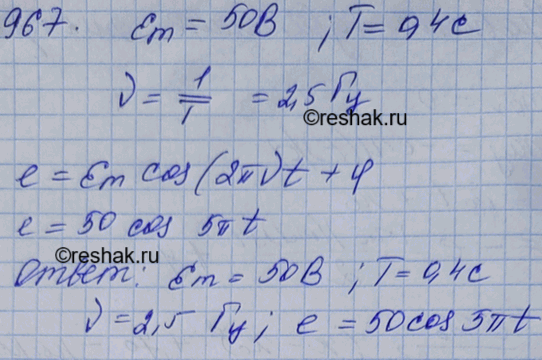 967. Ɛm = 50В ; T = 0,4с
ν = 1/T = 2,5 Гц
©reshak.ru
e = Ɛm cos(2πν)t + φ
e = 50 cos 5πt
©reshak.ru
Ответ: Ɛm = 50В ; T = 0,4с
ν = 2,5 Гц ; e = 50 cos 5πt